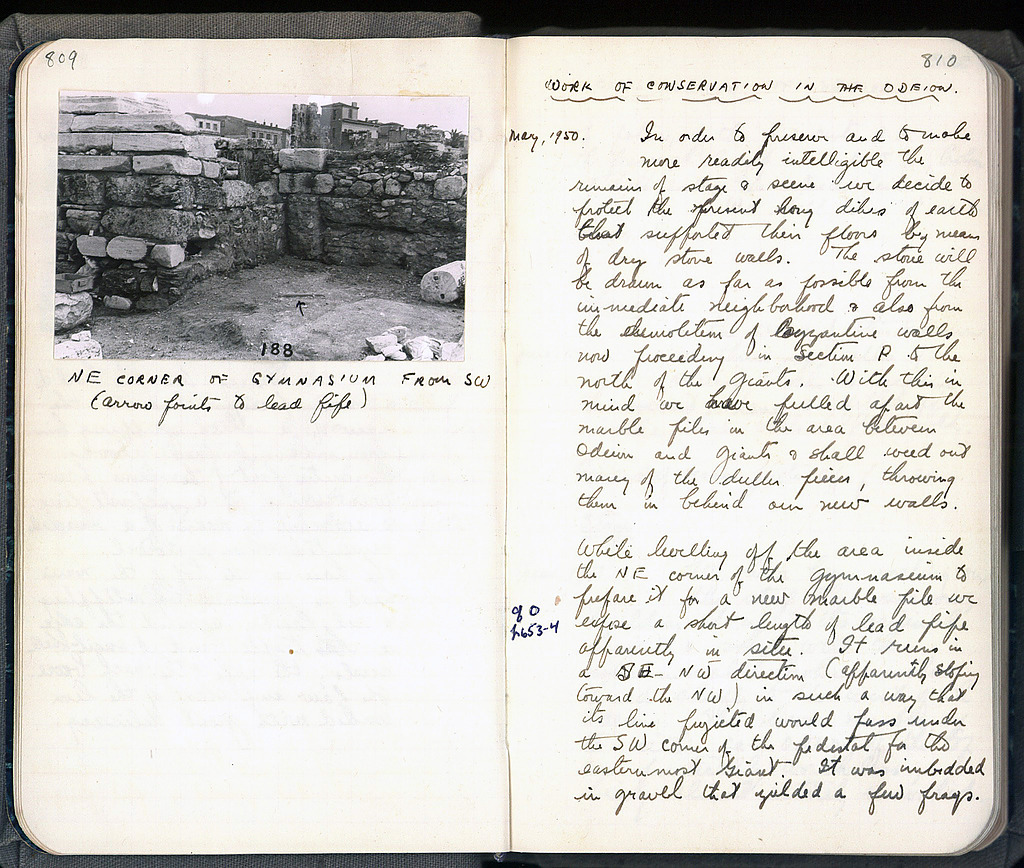 809
188
NE CORNER OF GYMNASIUM FROM SW
(arrow points to lead pipe)
810
WORK OF CONSERVATION IN THE ODEION.
May, 1950. In order to preserve and to make
more readily intelligible the
remains of stage & scene we decide to
protect the present long dikes of earth
that supported their floors by means
of dry stone walls. The stone will
be drawn as far as possible from the
immediate neighborhood & also from
the demolition of byzantine walls
now proceeding in Section P to the
north of the Giants. With this in
mind we have pulled apart the
marble piles in the area between
Odeion and Giants & shall weed out
many of the duller pieces, throwing
them in behind our new walls.
While levelling off the area inside
the NE corner of the Gymnasium to
prepare it for a new marble pile we
expose a short length of lead pipe
apparently in situ. It runs in
a SE - NW direction (apparently sloping
toward the NW) in such a way that
its line projected would pass under
the SW corner of the pedestal for the
easternmost Giant. It was imbedded
in gravel that yielded a few frags.